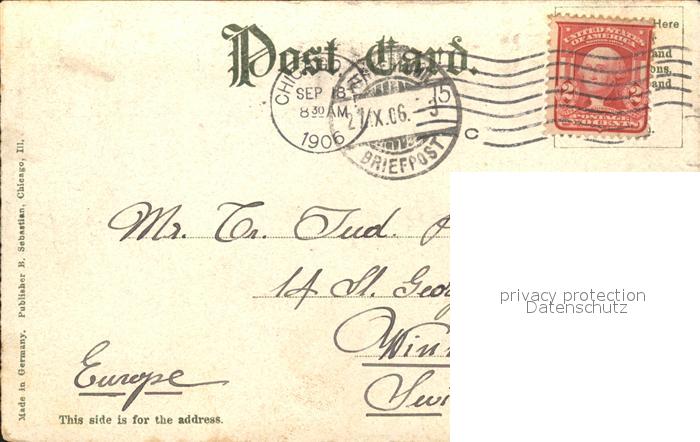 Post Card.
Here
and
ons,
and
UNITED STATES
OF AMERICA
2 2
POSTAGE
CENTS
CHICAGO
SEP 18
8 30 AM
1906
15
C
IX.06.
BRIEFPOST
Mr.
14 St. Geor
Win
Swi
Europe
privacy protection
Datenschutz
This side is for the address.
Made in Germany. Publisher B. Sebastian, Chicago, Ill.